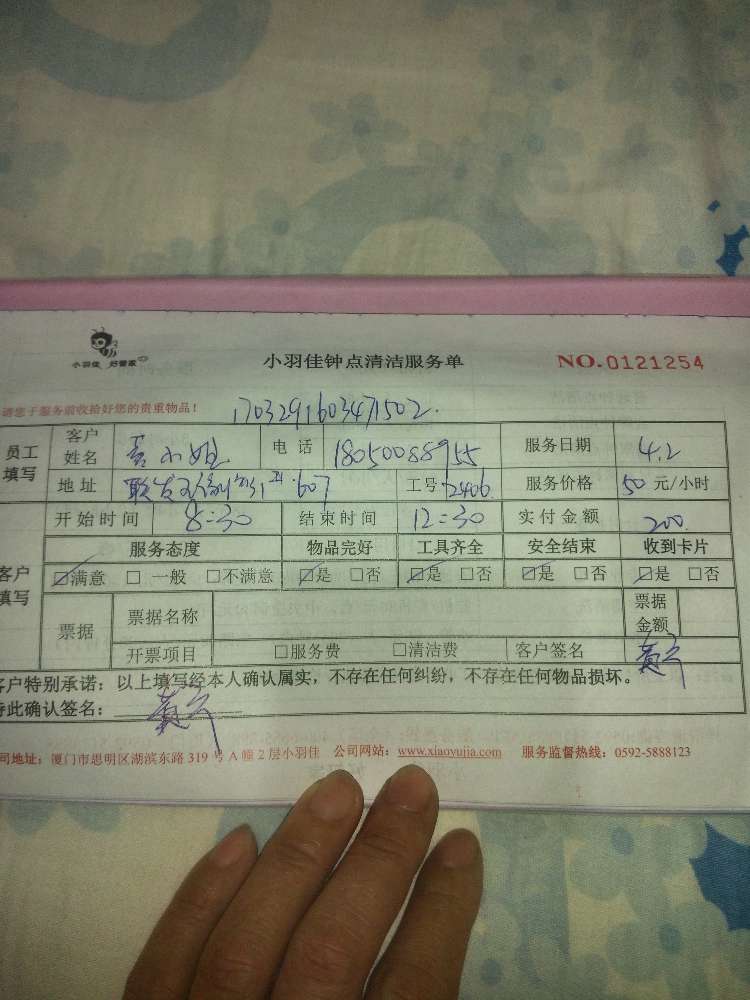 小羽佳 好管家
小羽佳钟点清洁服务单 NO.0121254
请您于服务前收拾好您的贵重物品! 1703291603471502.
员工填写 客户姓名 小姐 电话 18050088955 服务日期 4.2
地址 607 工号 2406 服务价格 50 元/小时
客户填写 开始时间 8:30 结束时间 12:30 实付金额 200
服务态度 物品完好 工具齐全 安全结束 收到卡片
☑满意 □ 一般 □不满意 ☑是 □否 ☑是 □否 ☑是 □否 ☑是 □否
票据 票据名称 票据金额
开票项目 □服务费 □清洁费 客户签名
客户特别承诺:以上填写经本人确认属实,不存在任何纠纷,不存在任何物品损坏。
特此确认签名:
公司地址:厦门市思明区湖滨东路 319 号 A 幢 2 层小羽佳 公司网站:www.xiaoyujia.com 服务监督热线:0592-5888123